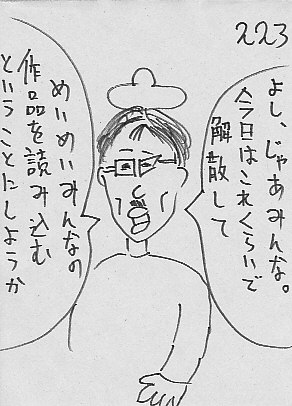 223
よし、じゃあみんな。
今日はこれくらいで
解散して
めいめいみんなの
作品を読み込む
ということにしようか